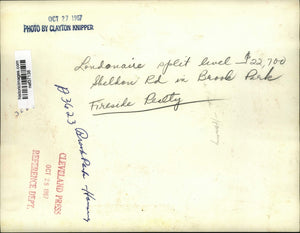 OCT 27 1967
PHOTO BY CLAYTON KNIPPER
Londonaire split level $22,700
Sheldon Rd in Brook Park
Fireside Realty
P3623 Brook Park Housing
CLEVELAND PRESS
OCT 28 1967
REFERENCE DEPT.